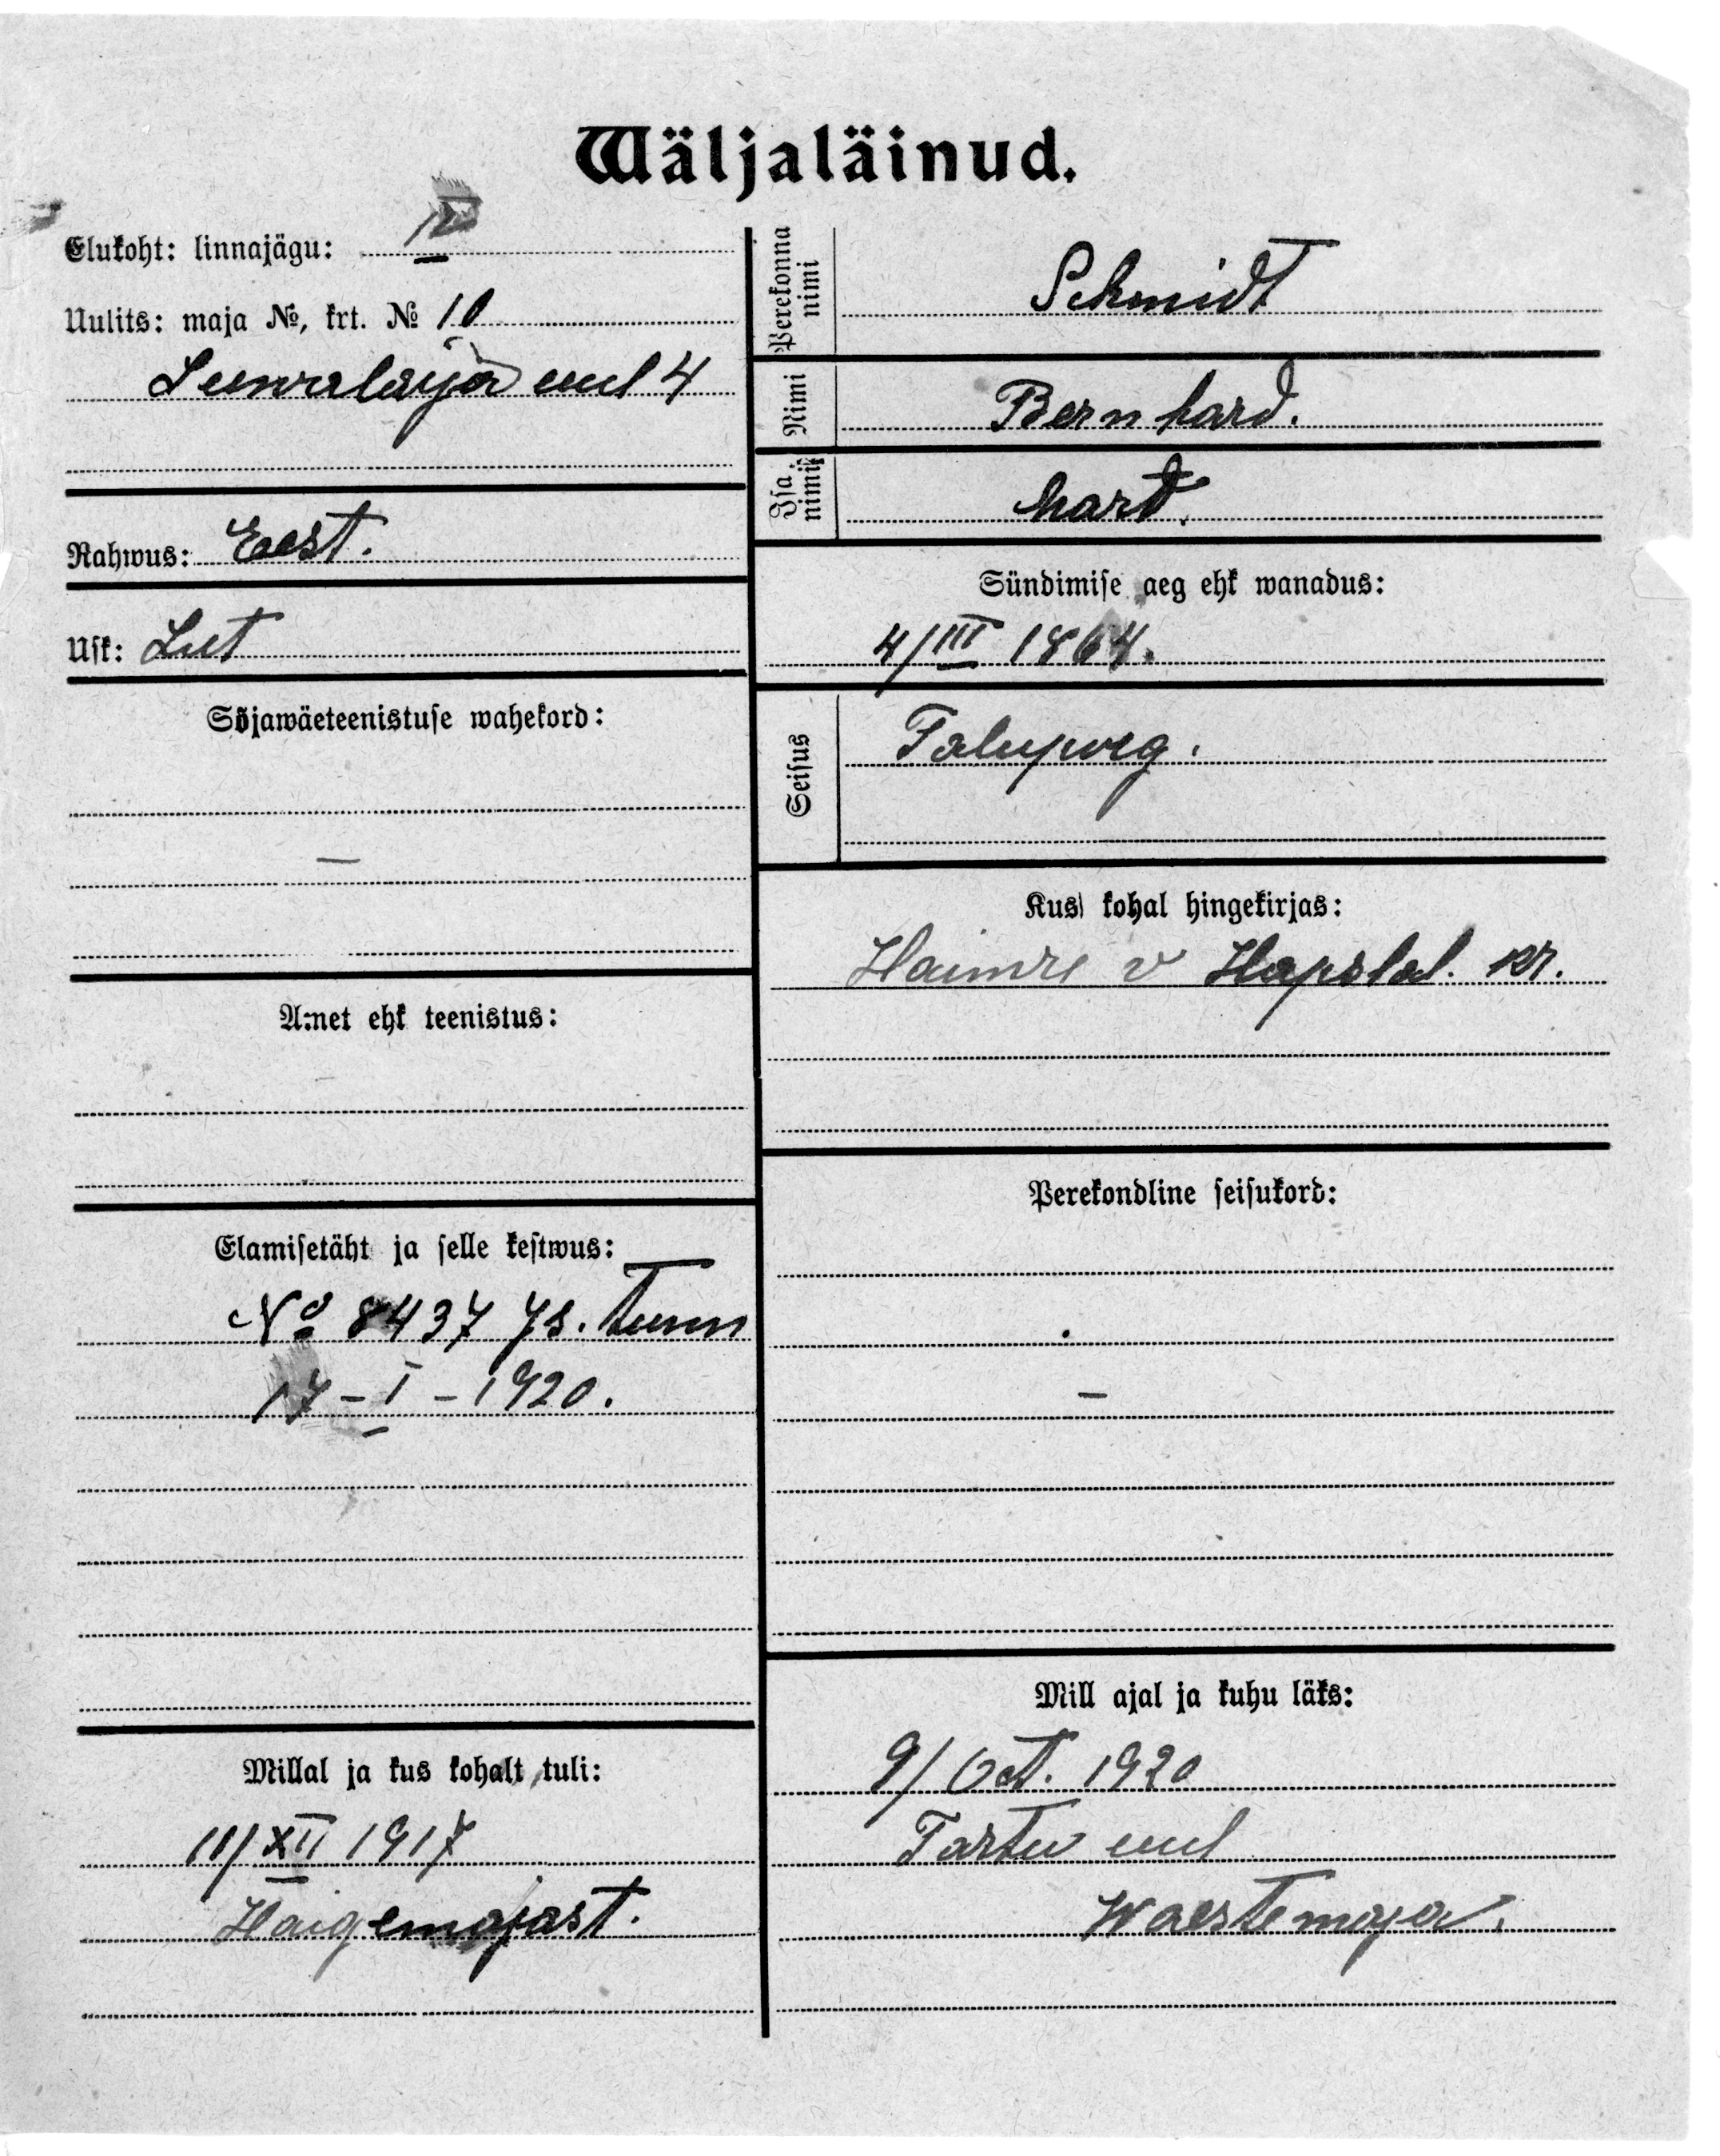 Wäljaläinud.
Elukoht: linnajägu:
Uulits: maja №, krt. № 10
uul 4
Rahwus: Eest.
Usk: Lut
Sõjawäeteenistuse wahekord:
—
Amet ehk teenistus:
Elamisetäht ja selle kestwus:
№ 8437 Is. tunn
17 - I - 1920.
Millal ja kus kohalt tuli:
11/XII 1917
Haigemajast.
Perekonna nimi
Schmidt
Nimi
Bernhard.
Isa nimi
hart.
Sündimise aeg ehk wanadus:
4/III 1864.
Seisus
Talupoeg.
Kus kohal hingekirjas:
Haimre v Hapsal. kr.
Perekondline seisukord:
—
Mill ajal ja kuhu läks:
9/Oct. 1920
Tartu uul
Waestemaja.